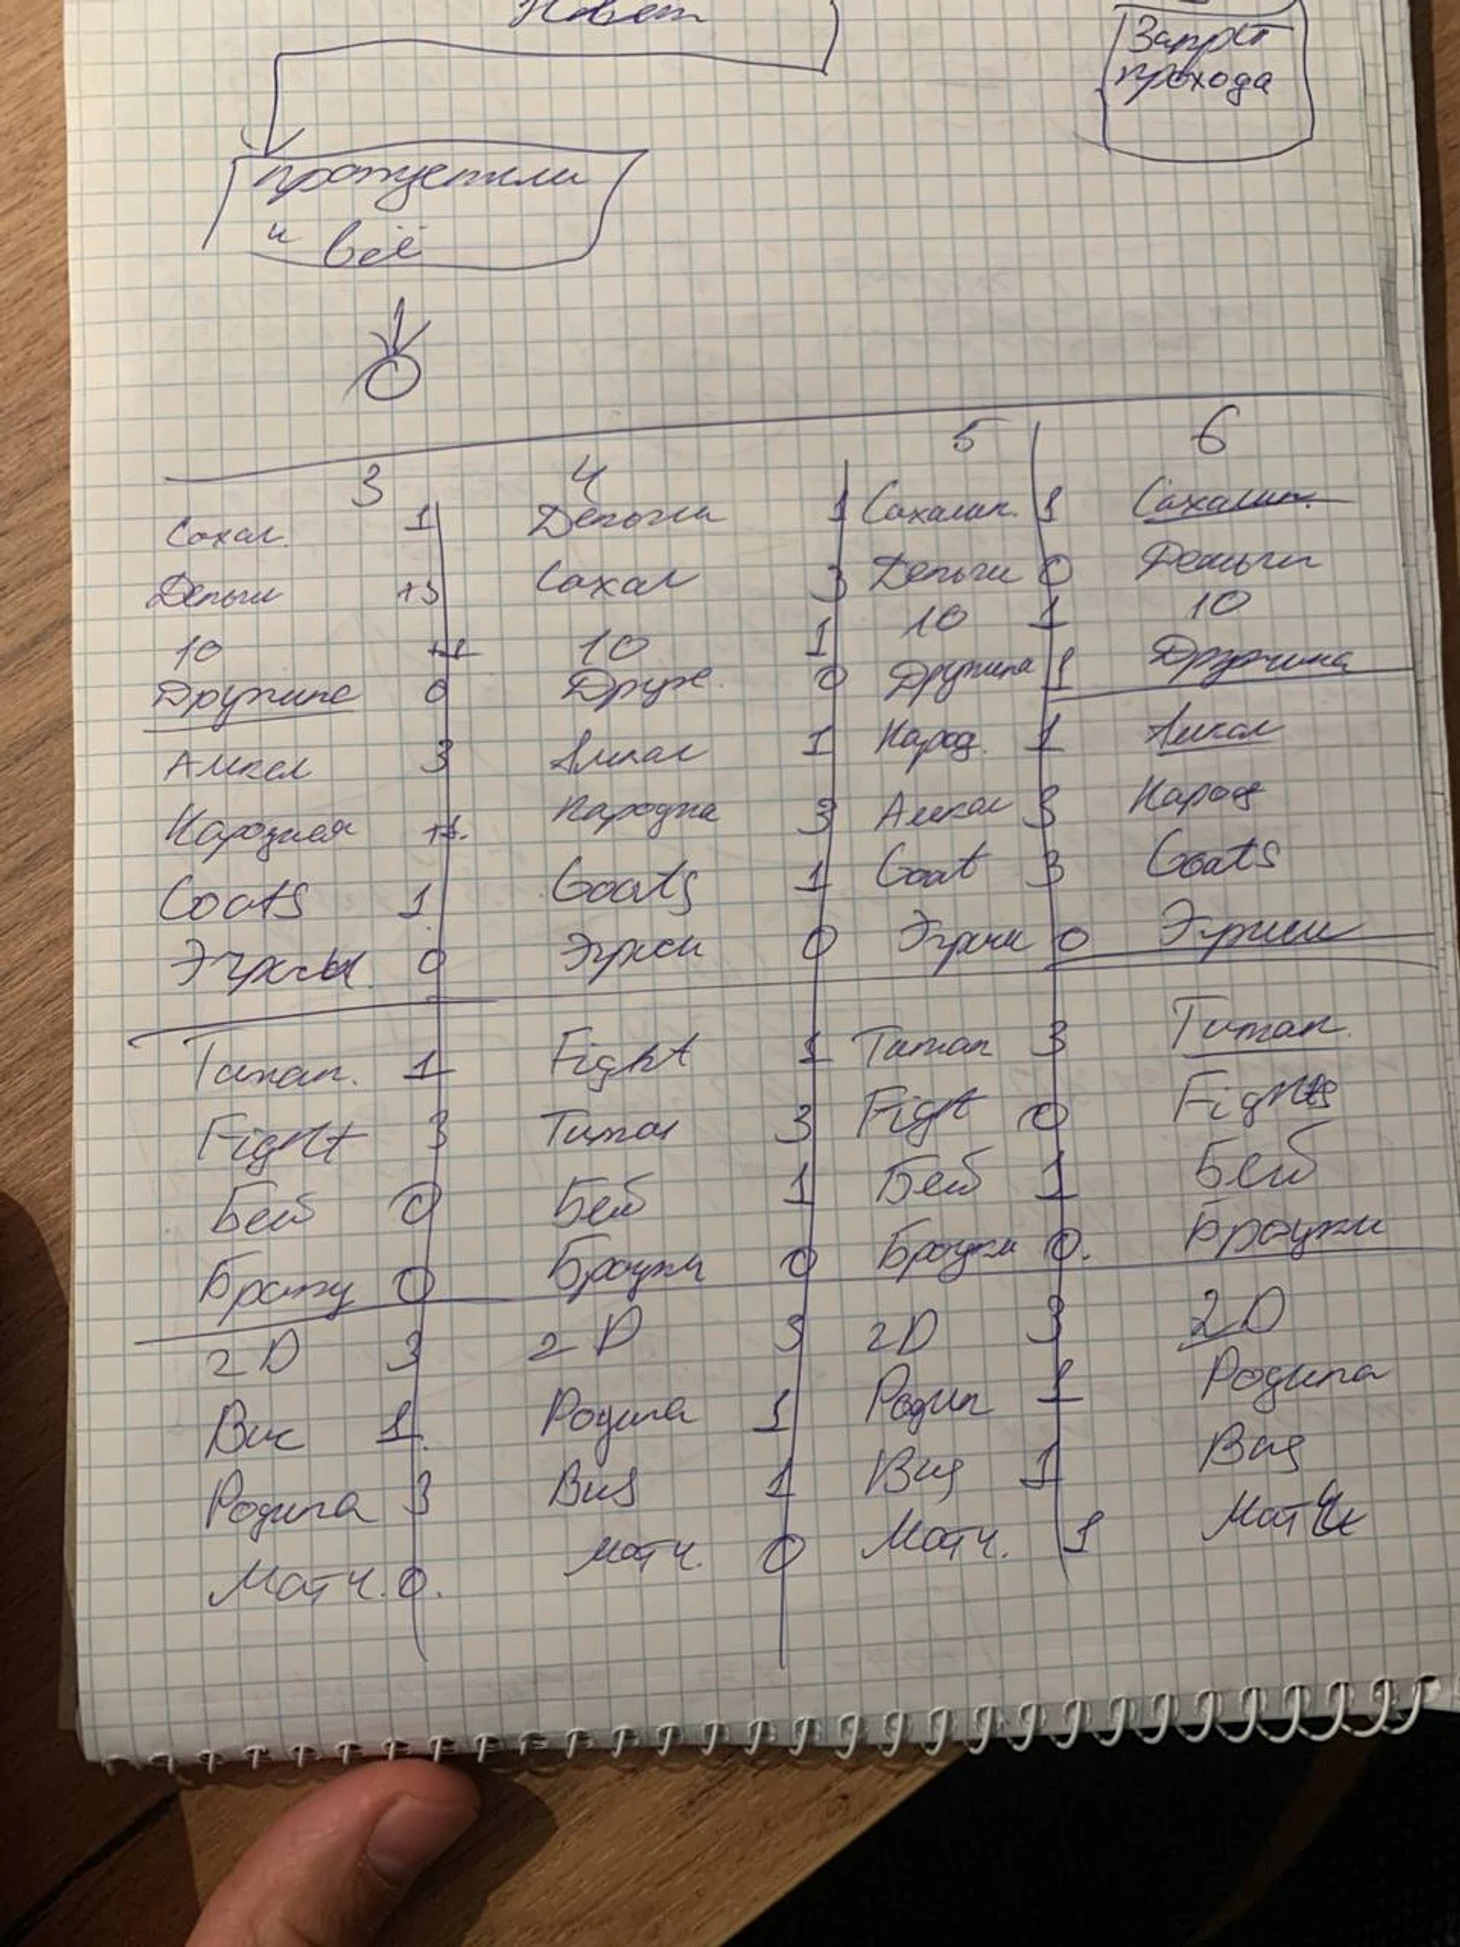 Запрет
прохода
пропустили
и всё
3 4 5 6
Сахал. 1 Деньги 1 Сахалин. 1 Сахалин.
Деньги +3 Сахал 3 Деньги 0 Деньги
10 +1 10 1 10 1 10
Дружина 0 Друж. 0 Дружина 1 Дружина
Амкал 3 Амкал 1 Народ. 1 Амкал
Народная +1. Народна 3 Амкал 3 Народ
Goats 1 Goats 1 Goat 3 Goats
Эгриси 0 Эгриси 0 Эгриси
Титан. 1 Fight 1 Титан 3 Титан.
Fight 3 Титан 3 Fight 0 Fights
Бей 0 Бей 1 Бей 1 Бей
0 Броуки 0 Броуки 0. Броуки
2D 3 2D 3 2D 3 2D
Вис 1. Родина 1 Родин 1 Родина
Родина 3 Виз 1 Виз 1 Виз
Матч. 0. Матч. 0 Матч. 1